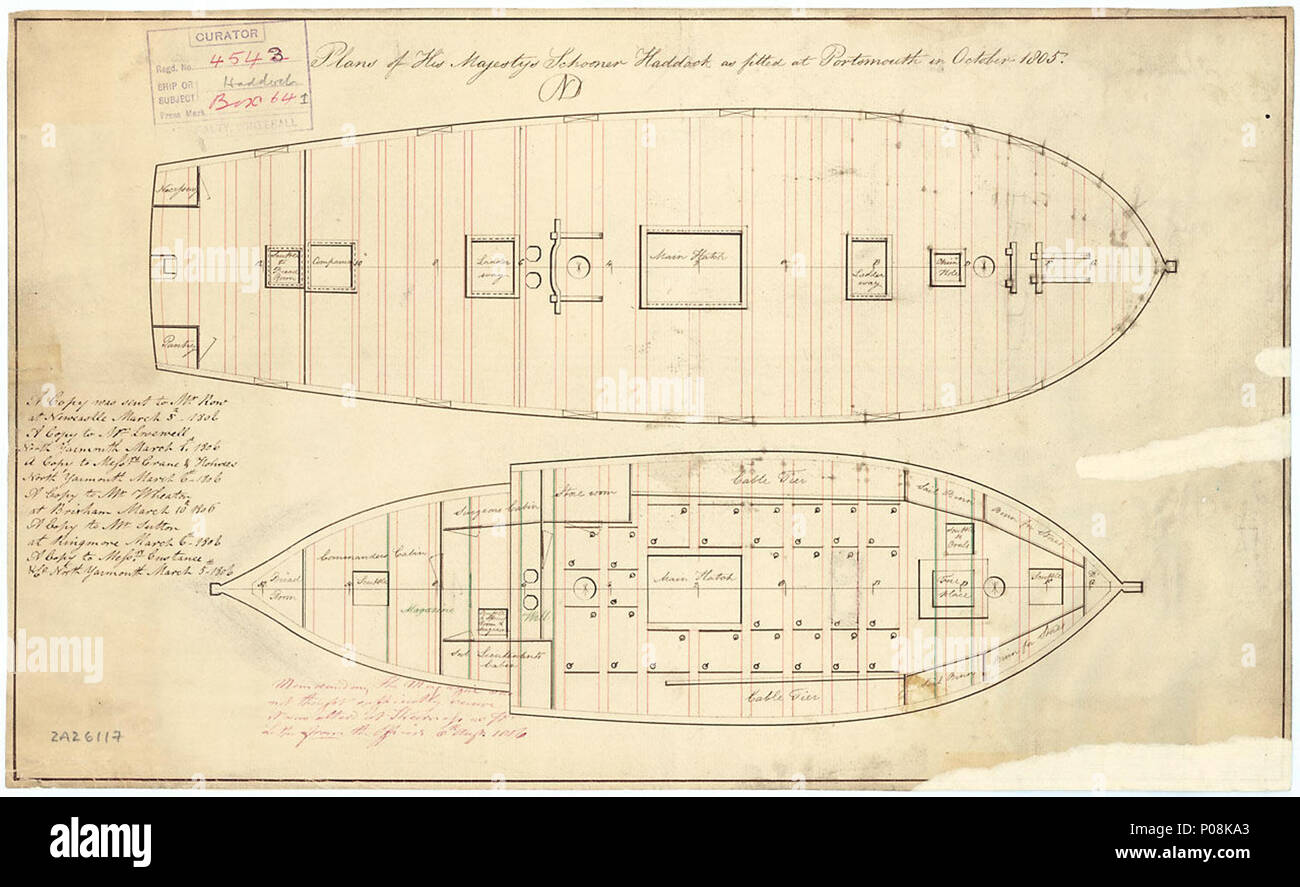 CURATOR
Regd. No. 4543
SHIP OR SUBJECT Haddock
Press Mark Box 64 1
Plans of His Majestys Schooner Haddock as fitted at Portsmouth in October 1805.
Pantry
Scuttle to Bread Room
Companion
Ladder way
Main Hatch
Ladder way
Hole
A Copy was sent to Mr Row
at Newcastle March 5th 1806
A Copy to Mr Lovewell
North Yarmouth March 1806
A Copy to Messrs Crane & Holmes
North Yarmouth March 6th 1806
A Copy to Mr Wheaton
at Brixham March 10th 1806
A Copy to Mr Sutton
at Ringmore March 6th 1806
A Copy to Messrs Custance
& Co North Yarmouth March 5th 1806
Bread Room
Commanders Cabin
Scuttle
Magazine
Surgeons Cabin
Store room
Well
Sub Lieutenants Cabin
Cable Tier
Main Hatch
Cable Tier
Sail Binn
Binn for Sails
Scuttle to Coals
Fire Place
Scuttle
Sail Binn
Binn for Sails
Memorandum, the Magazine
not thought sufficiently secure
altered at Sheerness
Letter from the Officers Augt 1806
ZAZ6117
alamy
Image ID: P08KA3
www.alamy.com